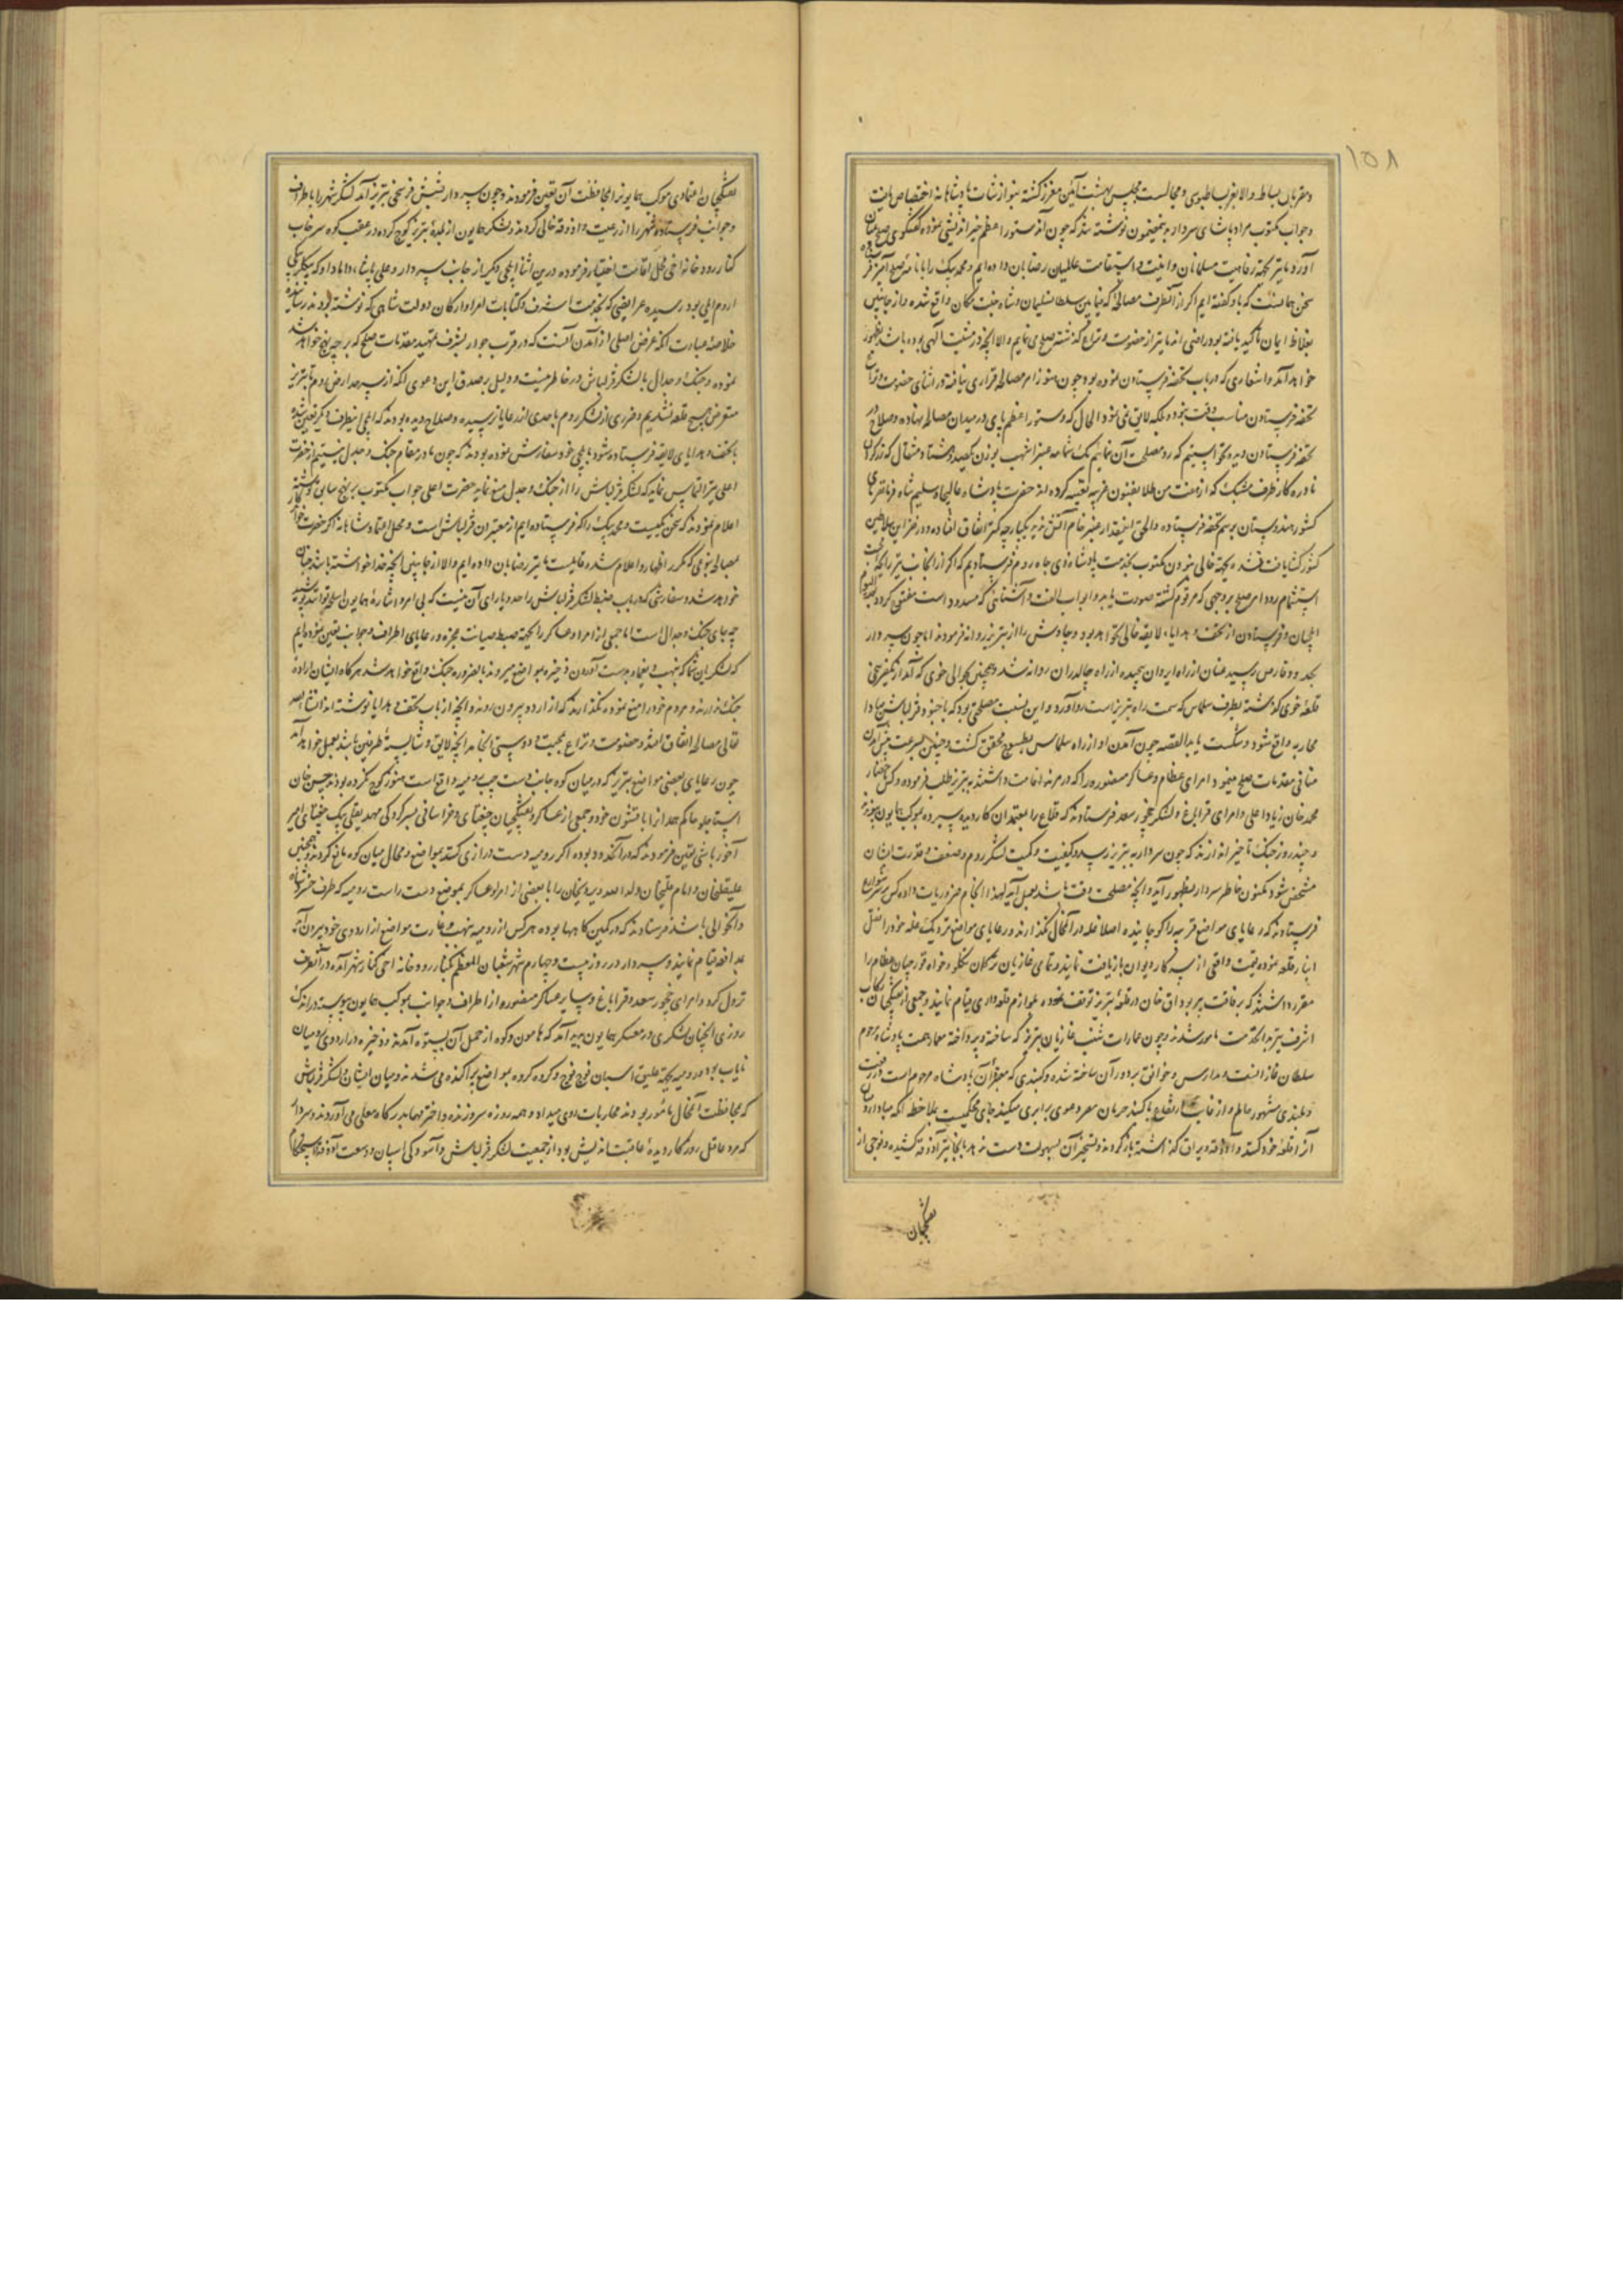 ۱۵۸
و مقربان بساط والا بغز بساطبوسی و مجالست مجلس بهشت آئین معزز گشته بنوازشات پادشاهانه اختصاص یافت
و جواب مکتوب مراد پاشای سردار به نمضمون نوشته شد که چون آن دستور اعظم خیراندیشی نموده گفتگوی صلح بمیان
آورد ما نیز بجهة رفاهیت مسلمانان و امنیت و استقامت عالمیان رضا بدان داده ایم و محمد بیک را با نامهٔ صلح آمیز
سخن همانست که باو گفته ایم اگر از آنطرف مصالحهٔ که فیمابین سلطان سلیمان و شاه جنت مکان واقع شده و از جانبین
بغلاظ ایمان تأکید یافته بود راضی اند ما نیز از خصومت و نزاع گذشته صلح می نمائیم والا آنچه در مشیت الهی بوده باشد بظهور
خواهد آمد و اشعاری که در باب تحفه فرستادن نموده بود چون هنوز امر مصالحه قراری نیافته در اثنای خصومت و نزاع
تحفه فرستادن مناسب وقت نبود بلکه لایق نمی نمود الحال که دستور اعظم پای در میدان مصالحه نهاده و صلاح در
تحفه فرستادن دیده نخواستیم که رد مصلحت آن نمائیم یک شمامه عنبر اشهب بوزن یکصد و هشتاد مثقال که زرگران
نادره کار ظرف مشبک که از هفت من طلا بفنون غریبه تعبیه کرده اند حضرت پادشاه عالیجاه سلیم شاه فرمانفرمای
کشور هندوستان برسم تحفه فرستاده والحق اینمقدار عنبر خام آتش ندیده یکپارچه کمتر اتفاق افتاده و در خزاین سلاطین
کشورگشا یافت نشده بجهة خالی نبودن مکتوب بخدمت پادشاه ذی جاه روم فرستادیم که اگر از آنجانب نیز رایحهٔ
استشمام رود و امر صلح بر وجهی که مرقوم گشته صورت یابد و ابواب الفت و آشنائی که مسدود است مفتوح گردد بعد الیوم
ایلچیان و فرستادن از تحف و هدایاء لایقه خالی نخواهد بود و چاوش را از تبریز روانه فرمودند اما چون سردار
بحدود قارص رسید عنان از راه ایروان پیچیده از راه چالدران روانه شد و بحوالی خوی که آمد از یکفرسخی
قلعهٔ خوی گذشته بطرف سلماس که سمت راه تبریز است رو آورد و این نسبت مصلحتی بود که با جنود قزلباش مبادا
محاربه واقع شود و شکست یابد القصه چون آمدن او از راه سلماس بطسوج محقق گشت و چنین بسرعت پیش آمدن
منافی مقدمات صلح مینمود امرای عظام و عساکر منصوره را که در مرند اقامت داشتند به تبریز طلب فرموده
محمد خان زیاد اعلی و امرای قراباغ و لشکر چخور سعد فرستادند که قلاع را بمعتمدان کاردیده سپرده بموکب همایون پیوندند
و چند روز جنگ تأخیر اندازند که چون سردار به تبریز رسد و کیفیت و کمیت لشکر روم و ضعف و قدرت ایشان
مشخص شود مکنون خاطر سردار بظهور آید و آنچه مصلحت وقت باشد بعمل آید لهذا انجام ضروریات داده کس بشهر
فرستادند که رعایای مواضع قریبه را کوچانیده اصلا غله در آنمحال نگذارند و رعایای مواضع نزدیک غله خود را نقل
انبار قلعه نموده قیمت واقعی از سرکار دیوان بازیافت نمایند و تمامی غازیان ترکمان تنگلو و خواه قورچیان عظام را
مقرر داشتند که برفاقت پیر بوداق خان در قلعهٔ تبریز توقف نموده بلوازم قلعه داری قیام نمایند و جمعی از تفنگچیان رکاب
اشرف نیز بدانخدمت مامور شدند و چون عمارات شنب غازان تبریز که ساخته و پرداخته معمار همت پادشاه مرحوم
سلطان غازانست و مدارس و خوانق بر دور آن ساخته شده و گنبدی که مقبرهٔ آن پادشاه مرحوم است و در رفعت
و بلندی مشهور عالم و از غایت ارتفاع با گنبد هرمان مصر دعوی برابری میکند جای محکمیست بملاحظه آنکه مبادا رومیان
آن را قلعهٔ خود کنند و آذوقه و یراق گذاشته بازگردند و تسخیر آن بسهولت دست ندهد بدانجا نیز آذوقه کشیده و فوجی از
تفنگچیان
تفنگچیان اعتمادی موکب همایون را بمحافظت آن تعیین فرمودند و چون سردار بشش فرسخی تبریز آمد لشکر شهر را باطراف
و جوانب فرستاده شهر را از رعیت و آذوقه خالی کردند و لشکر همایون از بلدهٔ تبریز کوچ کرده در عقب کوه سرخاب
کنار رودخانه اخی محل اقامت اختیار فرموده درین اثنا ایلچی دیگر از جانب سردار و علی پاشاء داماد او که بیکلربیکی
اروم ایلی بود رسیده عرایضی که بخدمت اشرف و کتابات بامرا و ارکان دولت شاهی که نوشته بودند رسانید
خلاصهٔ عبارت آنکه غرض اصلی از آمدن آنست که در قرب جوار بشرف تمهید مقدمات صلح که بر چه نهج خواهد شد
نموده و جنگ و جدال با لشکر قزلباش در خاطر نیست و دلیل بر صدق این دعوی آنکه از سرحد ارض روم تا تبریز
متعرض هیچ قلعه نشدیم و ضرری از لشکر روم باحدی از رعایا نرسیده و صلاح دیده بودند که ایلچی اینطرف دیگر تعیین شده
با تحف و هدایای لایقه فرستاده شود با ایلچی خود سفارش نموده بودند که چون ما در مقام جنگ و جدل نیستیم از حضرت
اعلی نیز التماس نماید که لشکر قزلباش را از جنگ و جدل منع نماید حضرت اعلی جواب مکتوب بر نهج سابق نوشته
اعلام نمودند که سخن یکیست و محمد بیک را که فرستاده ایم از معتبران قزلباش است و محل اعتماد شاهانه اگر حضرت خواندگار
بمصالحه بنوعی که مکرر اظهار و اعلام شده قایلست ما نیز رضا بدان داده ایم والا از جانبین آنچه خدا خواسته باشد چنان
خواهد شد و سفارشی که در باب ضبط لشکر قزلباش را حد و یارای آن نیست که بی امر و اشارهٔ همایون اسلحه توانند پوشید
چه جای جنگ و جدال است اما جمعی از امرا و عساکر را بجهة ضبط و صیانت عجزه و رعایای اطراف و جوانب تعیین نموده ایم
که لشکریان شما که بنهب و یغما و بدست آوردن ذخیره بمواضع میروند بالضروره جنگ واقع خواهد شد هرگاه ایشان ارادهٔ
جنگ ندارند و مردم خود را منع نموده نگذارند که از اردو بیرون روند و آنچه از باب تحف و هدایا نوشته اند انشاالله
تعالی مصالحه اتفاق افتد و خصومت و نزاع بمحبت و دوستی انجامد آنچه لایق و شایستهٔ طرفین باشد بعمل خواهد آمد
چون رعایای بعضی مواضع تبریز که در میان کوه جانب دست چپ رومیه واقع است هنوز کوچ نکرده بودند حسن خان
استاجلو حاکم همدان را با قشون خود و جمعی از عساکر و تفنگچیان چغتای و خراسانی بسرکردگی مهدیقلی بیک چغتای امیر
آخور باشی تعیین فرمودند که در آنحدود بوده اگر رومیه دست درازی کنند بمواضع و محال میان کوه مانع گردند و همچنین
علیقلیخان و امام قلیخان ولد الله ویردیخان را با بعضی از امرا و عساکر بموضع دست راست رومیه که طرف خسروشاه
و آنحوالی باشد فرستادند که در کمین گاهها بوده هر کس از رومیه بنهب و غارت مواضع از اردوی خود بیرون آید
بمدافعه قیام نمایند و سردار در روز بیست و چهارم شهر شعبان المعظم بکنار رودخانه اجی کنار شهر آمده در آنطرف
نزول کرد و امرای چخور سعد و قراباغ و سایر عساکر منصوره از اطراف و جوانب بموکب همایون پیوسته در اندک
روزی آنچنان لشکری در معسکر همایون پدید آمد که هامون و کوه از حمل آن بستوه آمدند و ذخیره در اردوی رومیان
نایاب بود رومیه بجهة علیق اسبان فوج فوج و گروه گروه بمواضع پراکنده می شدند و میان ایشان و لشکر قزلباش
که بمحافظت آنمحال مامور بودند محاربات روی میداد و همه روزه سر و زنده و اخترمها بدرگاه معلی می آوردند و سردار
که مرد عاقل روزگار دیدهٔ عاقبت اندیش بود از جمعیت لشکر قزلباش و آسودگی اسپان و وسعت آذوقه